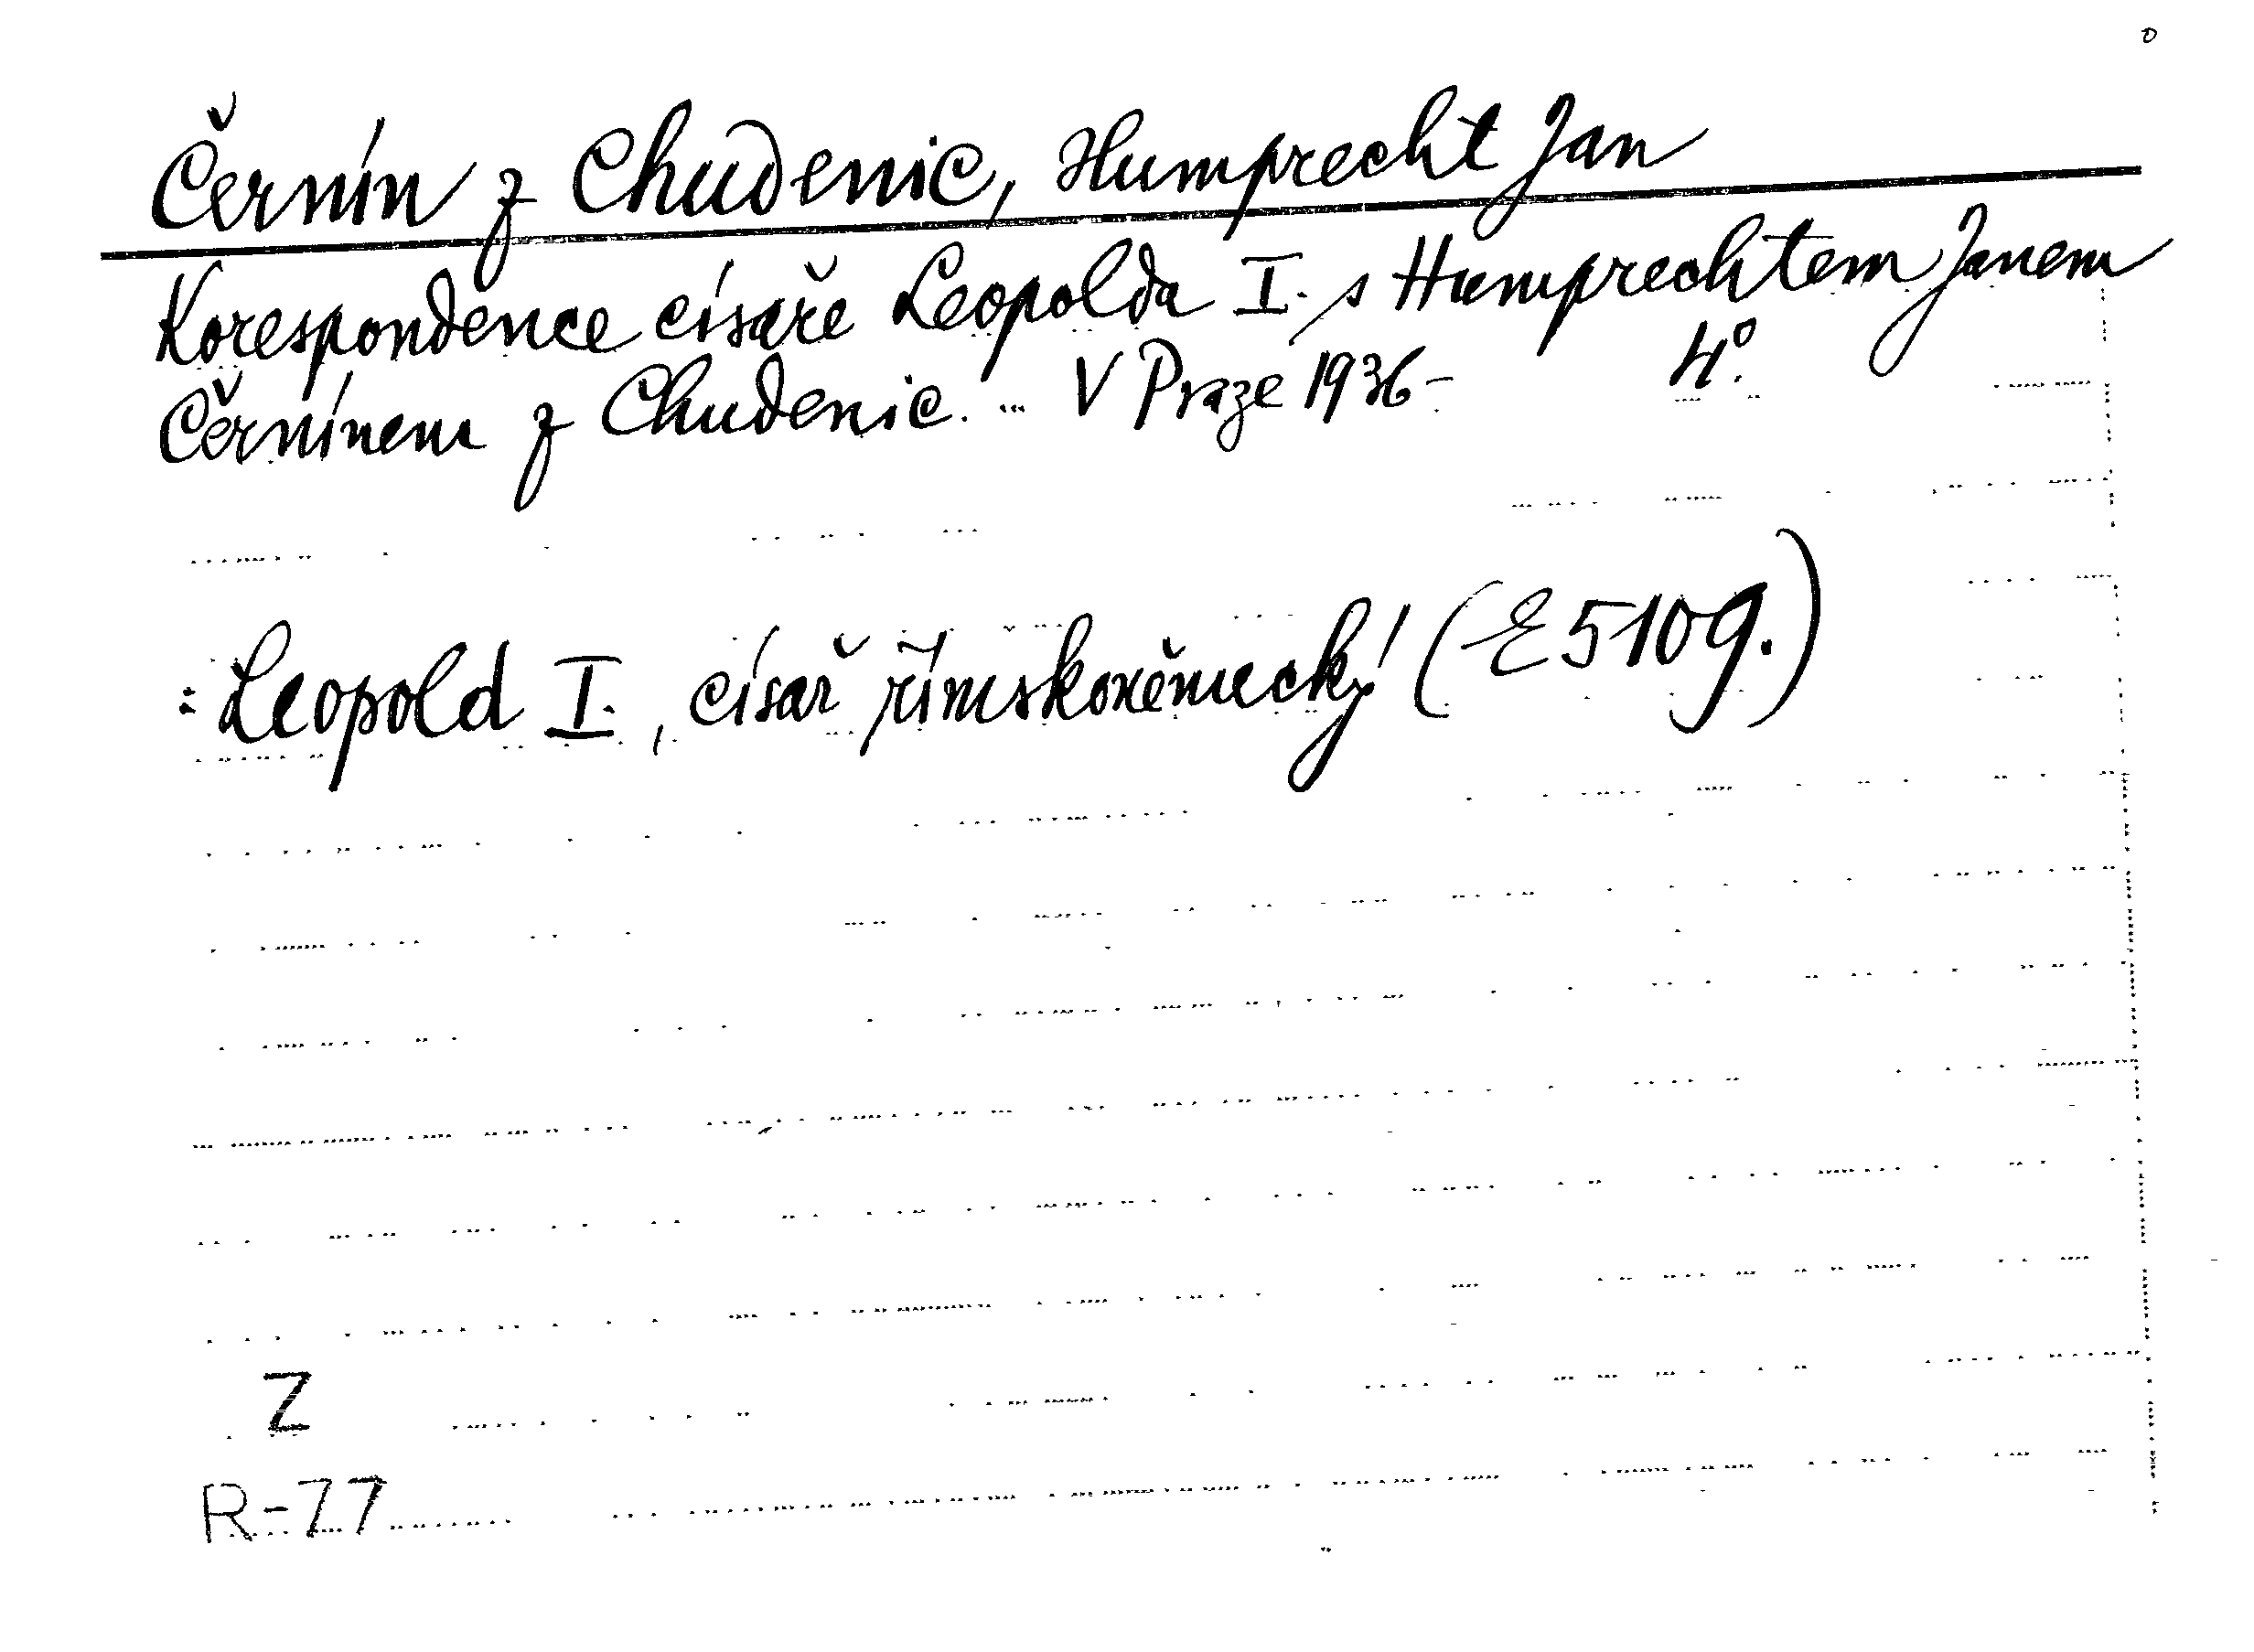 Černín z Chudenic, Humprecht Jan
Korespondence císaře Leopolda I. s Humprechtem Janem
Černínem z Chudenic. ... V Praze 1936- 4°.
: Leopold I., císař římskoněmecký (E 5109.)
Z
R-77